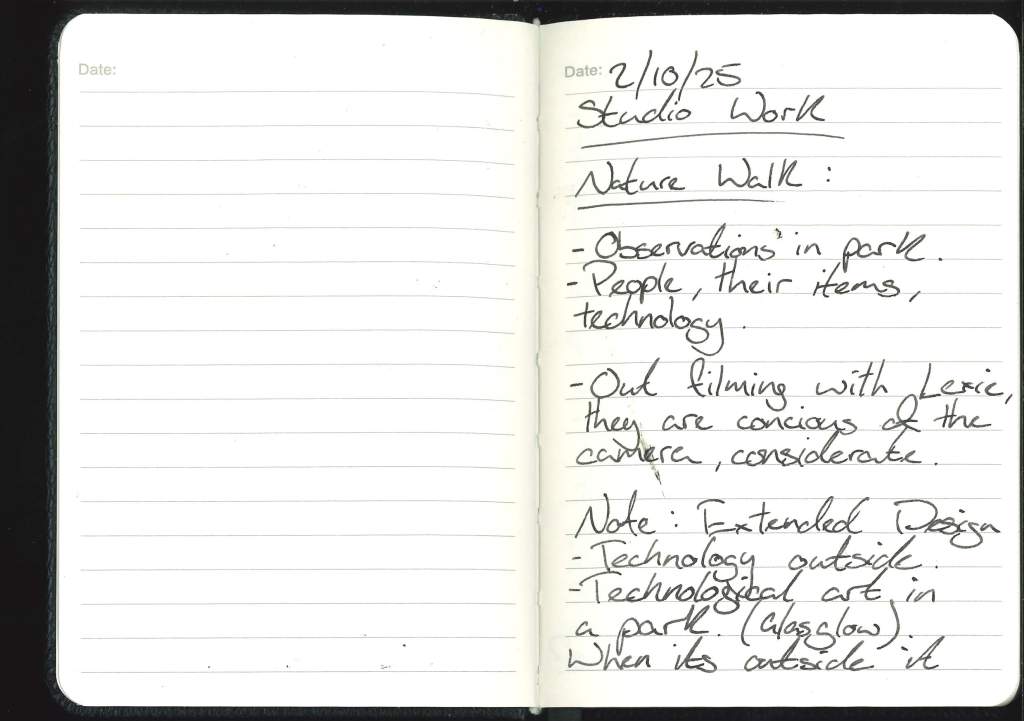 Date:
Date: 2/10/25
Studio Work
Nature Walk :
- Observations in park.
- People, their items,
technology.
- Out filming with Lexie,
they are concious of the
camera, considerate.
Note : Extended Design
- Technology outside.
- Technological art in
a park. (Glasglow).
When its outside it